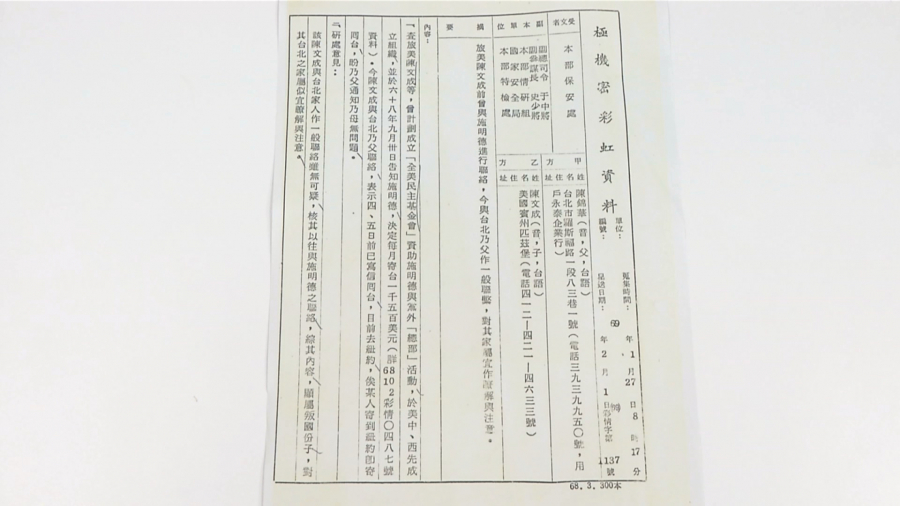 極機密彩虹資料
單位：
編號：
蒐集時間： 69年1月27日8時17分
呈送日期： 年2月1日彩情字第1137號
受文者
本部保安處
副本單位
副總司令 于中將
副參謀長 史少將
本部情研組
國家安全局
本部特檢處
甲方
姓名
住址
陳錦華（音，父，台語）
台北市羅斯福路一段八三巷一號（電話三九三九九五〇號，用
戶永泰企業行）
乙方
姓名
住址
陳文成（音，子，台語）
美國賓州匹茲堡（電話四一二－四二一－四六三三號）
摘要
旅美陳文成前曾與施明德進行聯絡，今與台北乃父作一般聯繫，對其家福宜作瞭解與注意。
內容：
一查旅美陳文成等，曾計劃成立「全美民主基金會」資助施明德與黨外「總部」活動，於美中、西先成
立組織，並於六十八年九月卅日告知施明德，決定每月寄台一千五百美元（詳68102彩情〇四八七號
資料）。今陳文成與台北乃父聯絡，表示四、五日前已寫信囘台，目前去紐約，俟某人寄到紐約卽寄
囘台，盼乃父通知乃母無問題。
二研處意見：
該陳文成與台北家人作一般聯絡雖無可疑，核其以往與施明德之聯絡，綜其內容，顯屬叛國份子，對
其台北之家屬似宜瞭解與注意。
68.3.300本